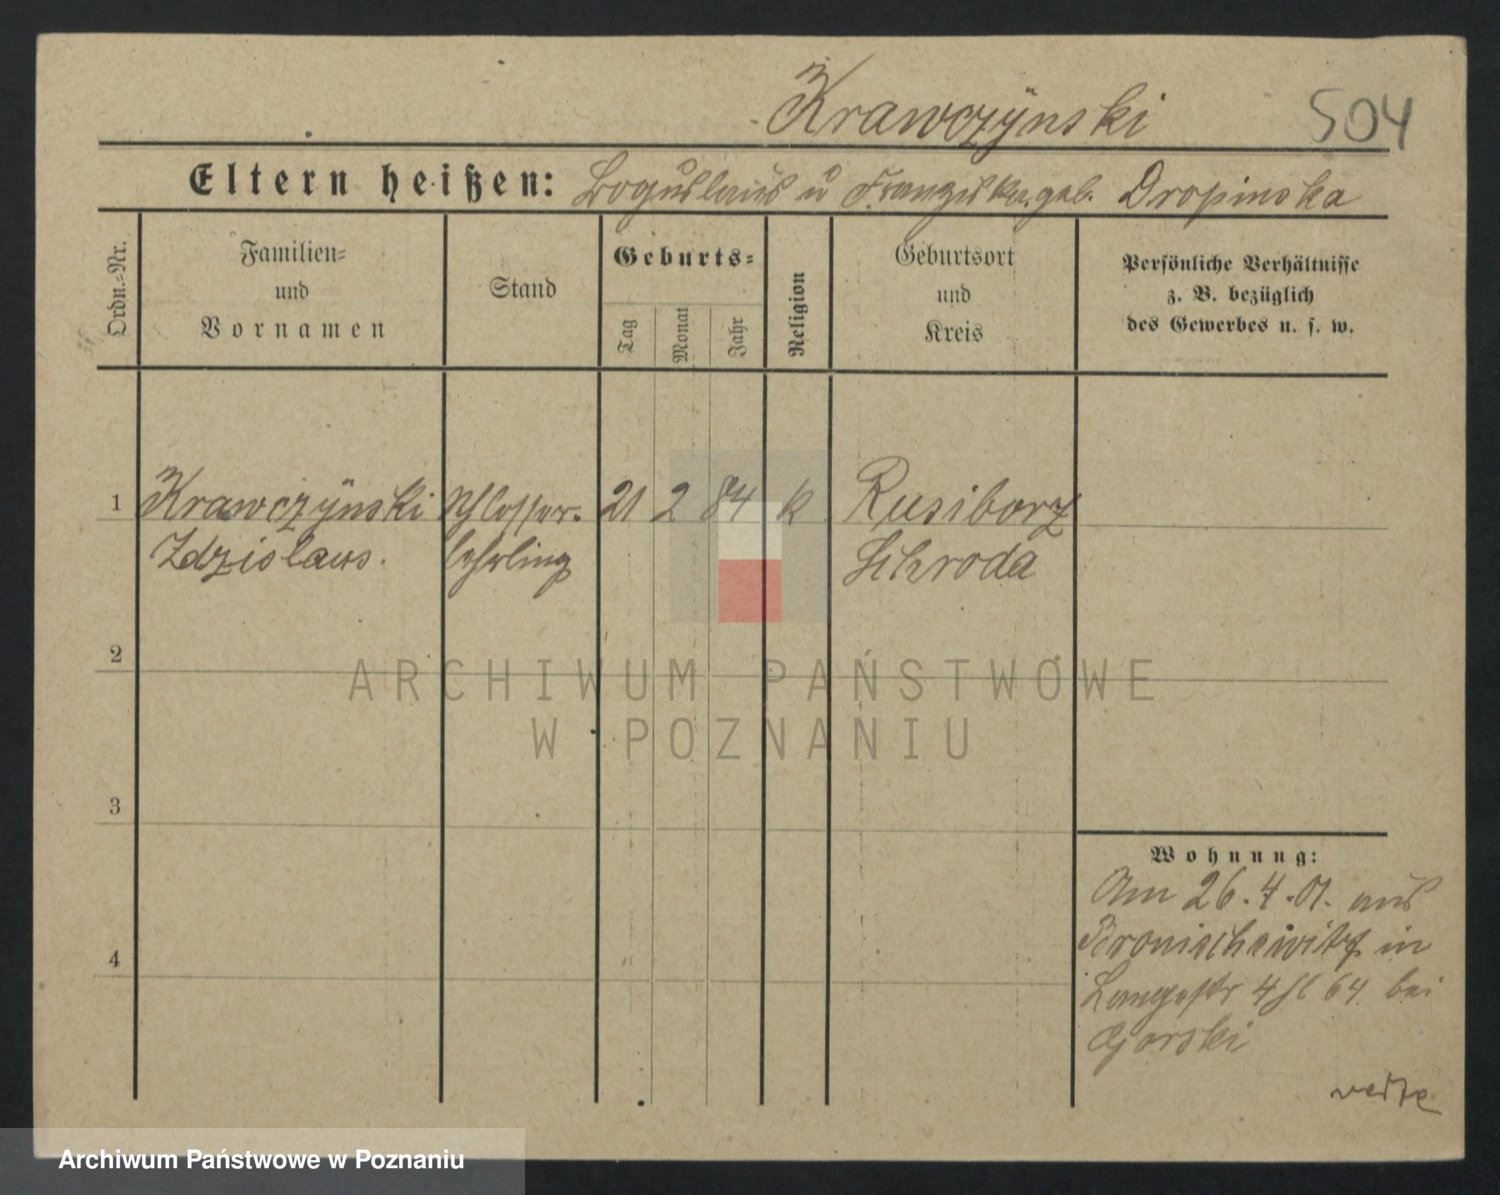 Krawczÿnski 504
Eltern heißen: Boguslaus u Franziska geb. Dropinska
Ordn.-Nr.
Familien-
und
Vornamen
Stand
Geburts-
Tag
Monat
Jahr
Religion
Geburtsort
und
Kreis
Persönliche Verhältnisse
z. B. bezüglich
des Gewerbes u. s. w.
1 Krawczÿnski Schlosser- 21 2 84 k Rusiborz
Zdzislaus. lehrling Schroda
2
ARCHIWUM PAŃSTWOWE
W POZNANIU
3
4
Wohnung:
Am 26.4.01. aus
Bronischewitz in
Langestr 4 Hl 64 bei
Gorski
verte
Archiwum Państwowe w Poznaniu